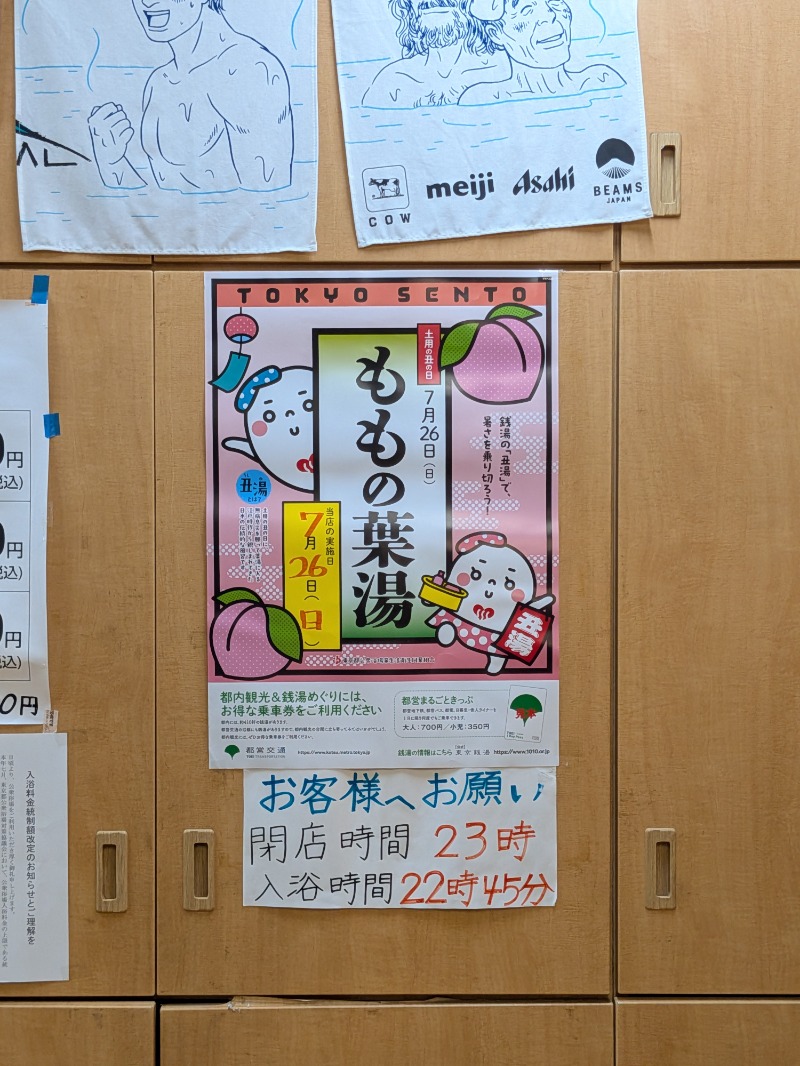 COW
meiji
Asahi
BEAMS
JAPAN
TOKYO SENTO
土用の丑の日
7月26日(日)
ももの葉湯
銭湯の「丑湯」で、
暑さを乗り切ろう!
丑湯
とは?
当店の実施日
7月26日(日)
丑湯
都内観光&銭湯めぐりには、
お得な乗車券をご利用ください
都営交通
https://www.kotsu.metro.tokyo.jp
都営まるごときっぷ
大人:700円/小児:350円
銭湯の情報はこちら 東京銭湯 https://www.1010.or.jp
お客様へお願い
閉店時間 23時
入浴時間 22時45分
円
税込)
円
税込)
円
税込)
0円
入浴料金統制額改定のお知らせとご理解を